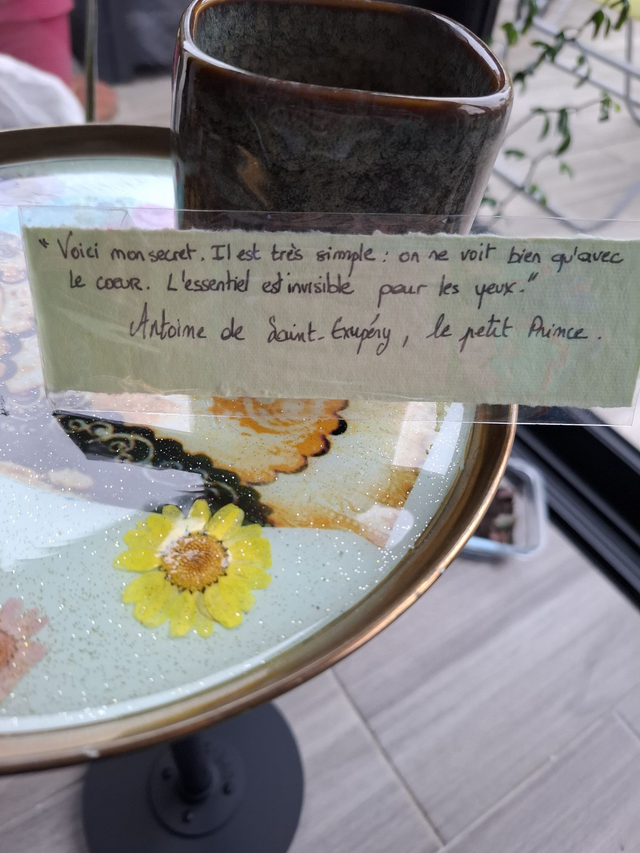 "Voici mon secret. Il est très simple : on ne voit bien qu'avec
le coeur. L'essentiel est invisible pour les yeux."
Antoine de Saint-Exupéry, le petit Prince.